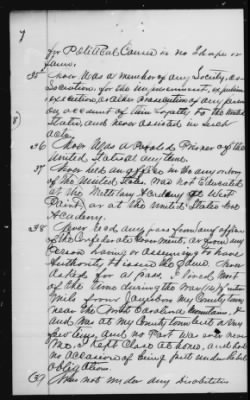 7
for Political Cause in no Shape or
form.
35 Never Was a member of any Society, as
sociation, for the imprisonment, expulsion
execution, or other Persecution of any person
on account of their loyalty to the United
States, and never assisted in such
acts.
36 Never Was a Paroled Prisoner of the
United States at any time.
37 Never held an office in the any or Navy
of the United States. Was not Educated
at the Military Academy at West
Point, or at the United States
Academy.
38 Never had any pass from any officer
of the Confederate Government, or from any
Person having or assuming to have
Authority to issue the Same. Never
asked for a pass. I lived most
of the time during the War
Mile from my County town
near the North Carolina
and was at my County town but a very
few times, and no Post was ever near
me. I kept Close at home, and had
no occasion of being put under Rebel
obligations.
39 Was not under any Disabilities